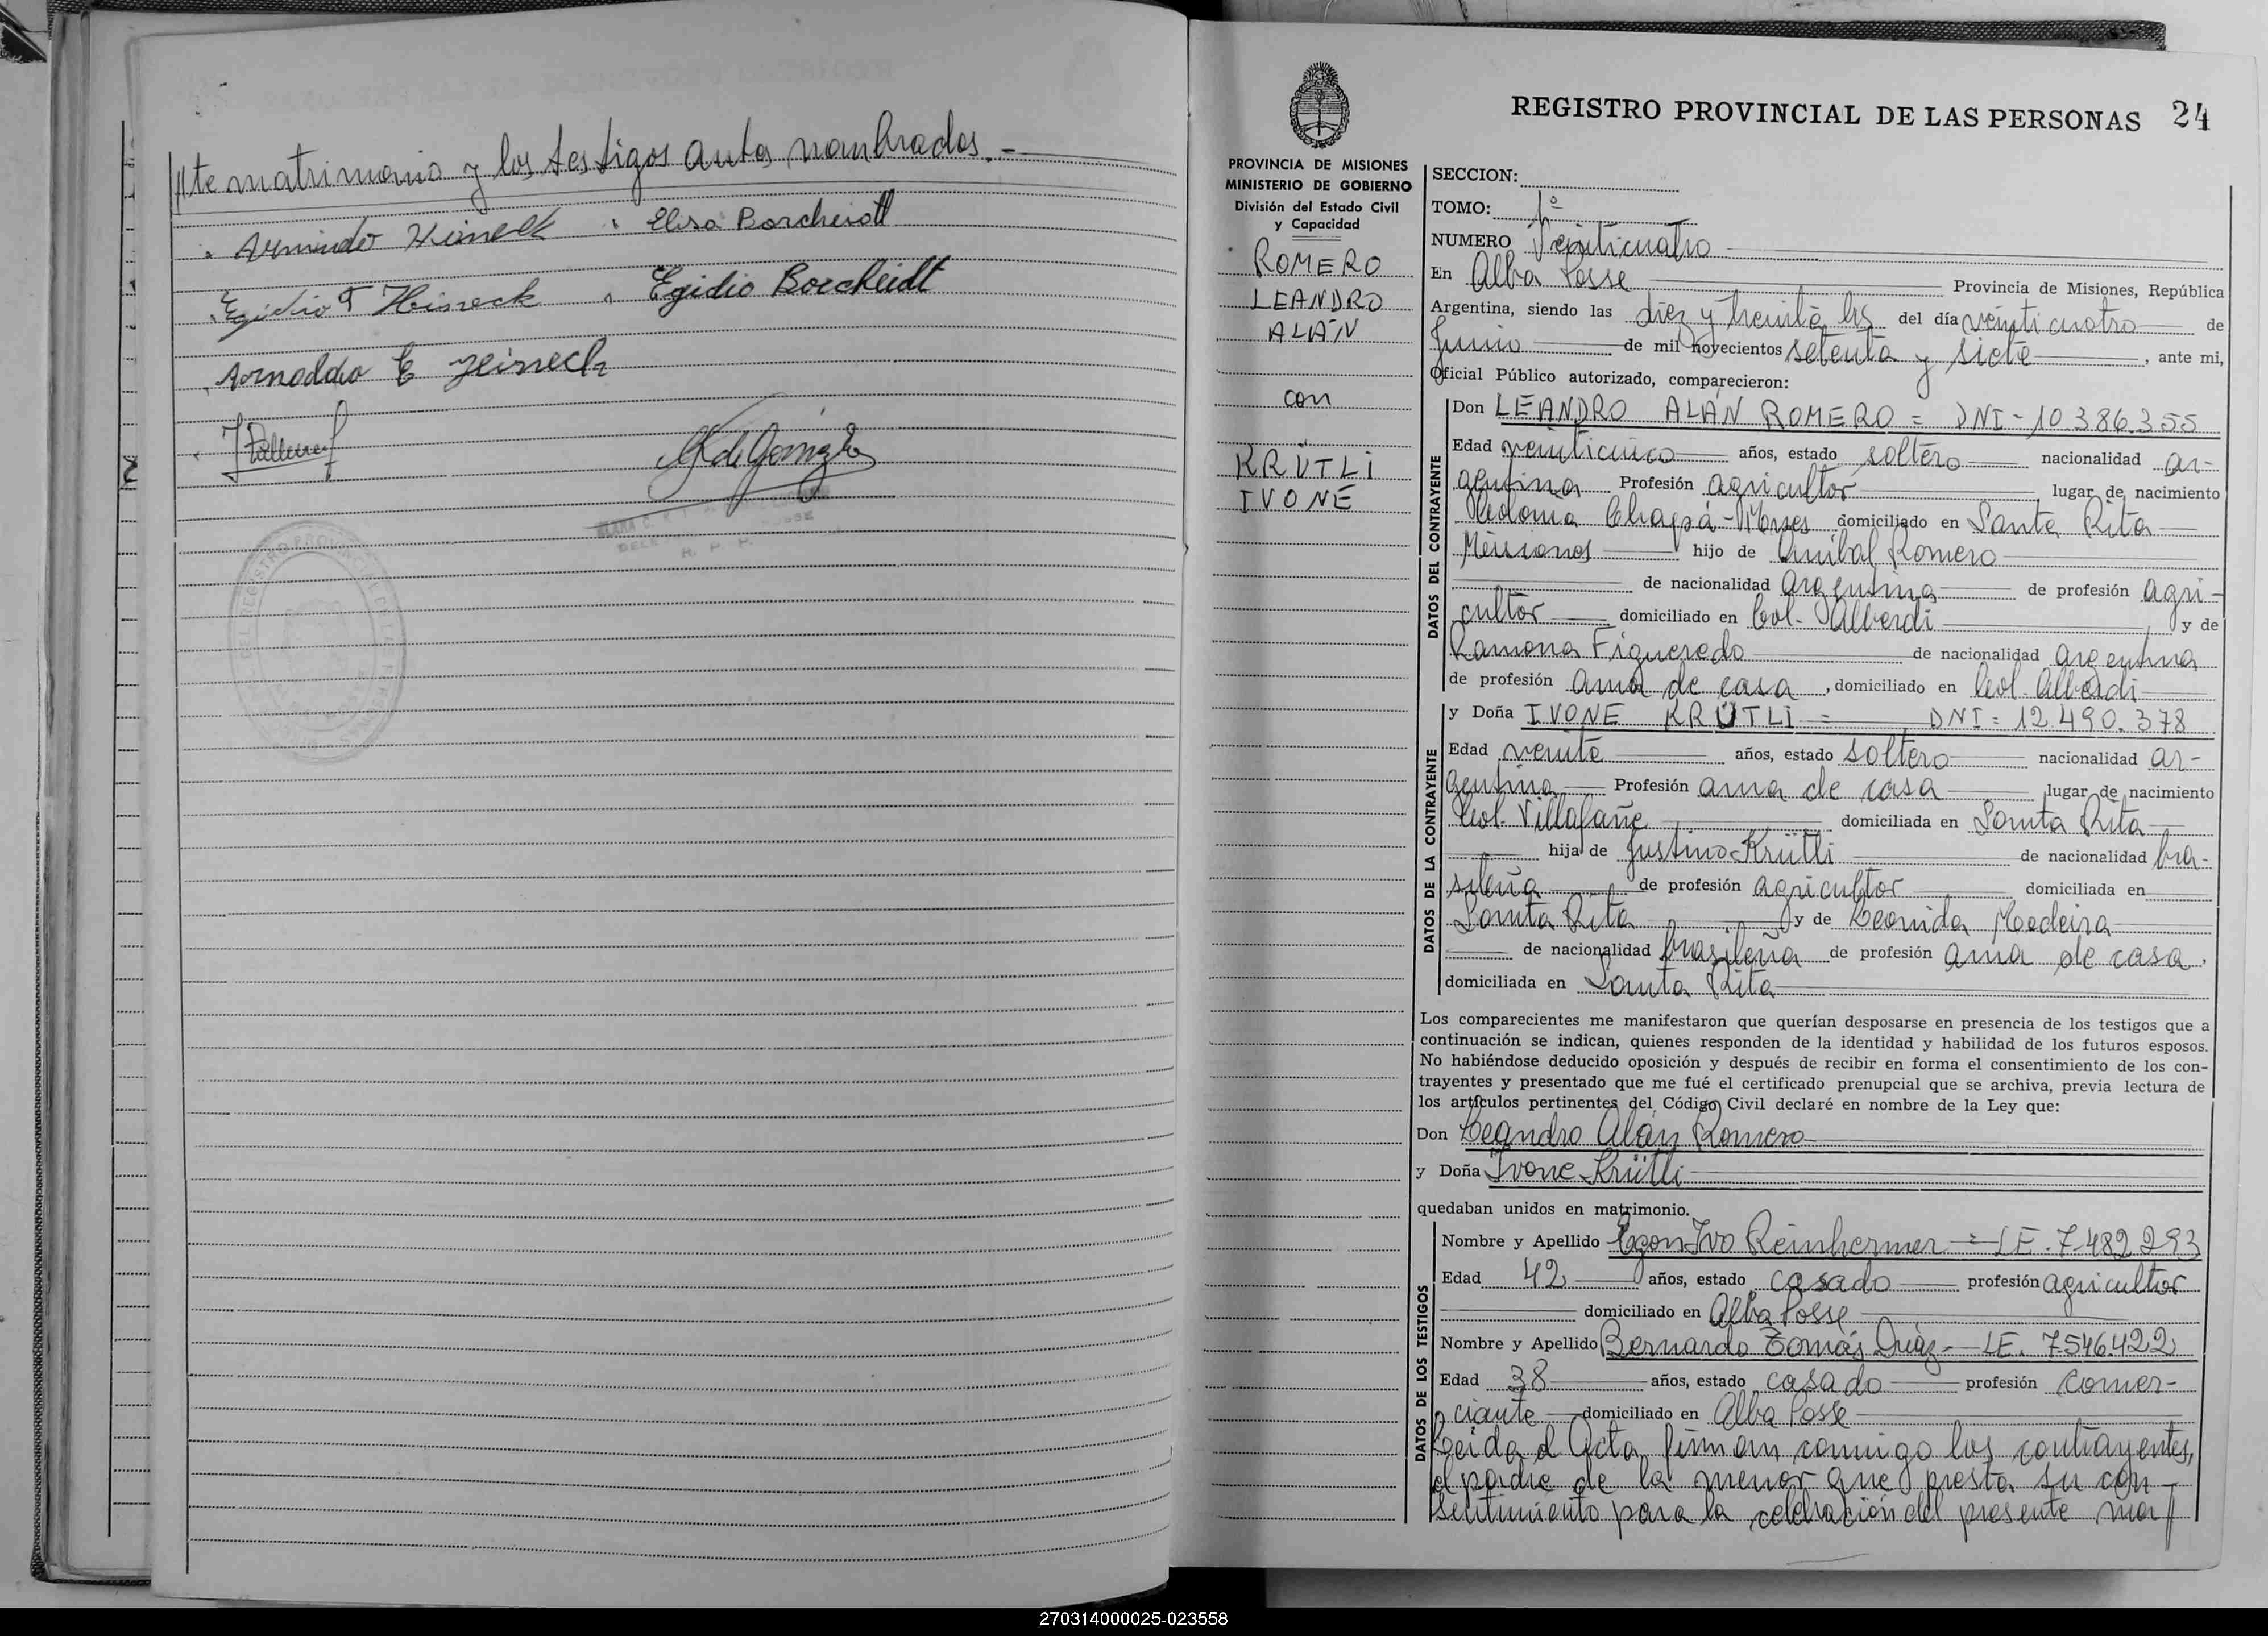 //te matrimonio y los testigos antes nombrados.-
Armindo Heineck Elisa Borcheidt
Egidio F Heineck Egidio Borcheidt
Arnoldo E Heineck
REGISTRO PROVINCIAL DE LAS PERSONAS 24
PROVINCIA DE MISIONES
MINISTERIO DE GOBIERNO
División del Estado Civil
y Capacidad
ROMERO
LEANDRO
ALÁN
con
KRÜTLI
IVONE
SECCION:
TOMO: 1º
NUMERO Veinticuatro
En Alba Posse Provincia de Misiones, República
Argentina, siendo las diez y treinta hs del día veinticuatro de
Junio de mil novecientos setenta y siete, ante mi,
Oficial Público autorizado, comparecieron:
DATOS DEL CONTRAYENTE
Don LEANDRO ALÁN ROMERO = DNI - 10.386.355
Edad veinticinco años, estado soltero nacionalidad ar-
gentina Profesión agricultor lugar de nacimiento
Colonia Chapá - Mnes domiciliado en Santa Rita
Misiones hijo de Anibal Romero
de nacionalidad argentina de profesión agri-
cultor domiciliado en Col. Alberdi y de
Ramona Figueredo de nacionalidad argentina
de profesión ama de casa, domiciliado en Col. Alberdi
DATOS DE LA CONTRAYENTE
y Doña IVONE KRÜTLI = DNI = 12.490.378
Edad veinte años, estado soltera nacionalidad ar-
gentina Profesión ama de casa lugar de nacimiento
Col. Villafañe domiciliada en Santa Rita
hija de Justino Krütli de nacionalidad bra-
sileña de profesión agricultor domiciliada en
Santa Rita y de Leonida Medeira
de nacionalidad brasileña de profesión ama de casa,
domiciliada en Santa Rita
Los comparecientes me manifestaron que querían desposarse en presencia de los testigos que a
continuación se indican, quienes responden de la identidad y habilidad de los futuros esposos.
No habiéndose deducido oposición y después de recibir en forma el consentimiento de los con-
trayentes y presentado que me fué el certificado prenupcial que se archiva, previa lectura de
los artículos pertinentes del Código Civil declaré en nombre de la Ley que:
Don Leandro Alán Romero
y Doña Ivone Krütli
quedaban unidos en matrimonio.
DATOS DE LOS TESTIGOS
Nombre y Apellido Egon Ivo Reinhermer = LE. 7.482.293
Edad 42 años, estado casado profesión agricultor
domiciliado en Alba Posse
Nombre y Apellido Bernardo Tomás Diaz - LE. 7.546.422
Edad 38 años, estado casado profesión comer-
ciante domiciliado en Alba Posse
Leida el Acta firman conmigo los contrayentes,
el padre de la menor que presta su con-
sentimiento para la celebración del presente ma//
270314000025-023558